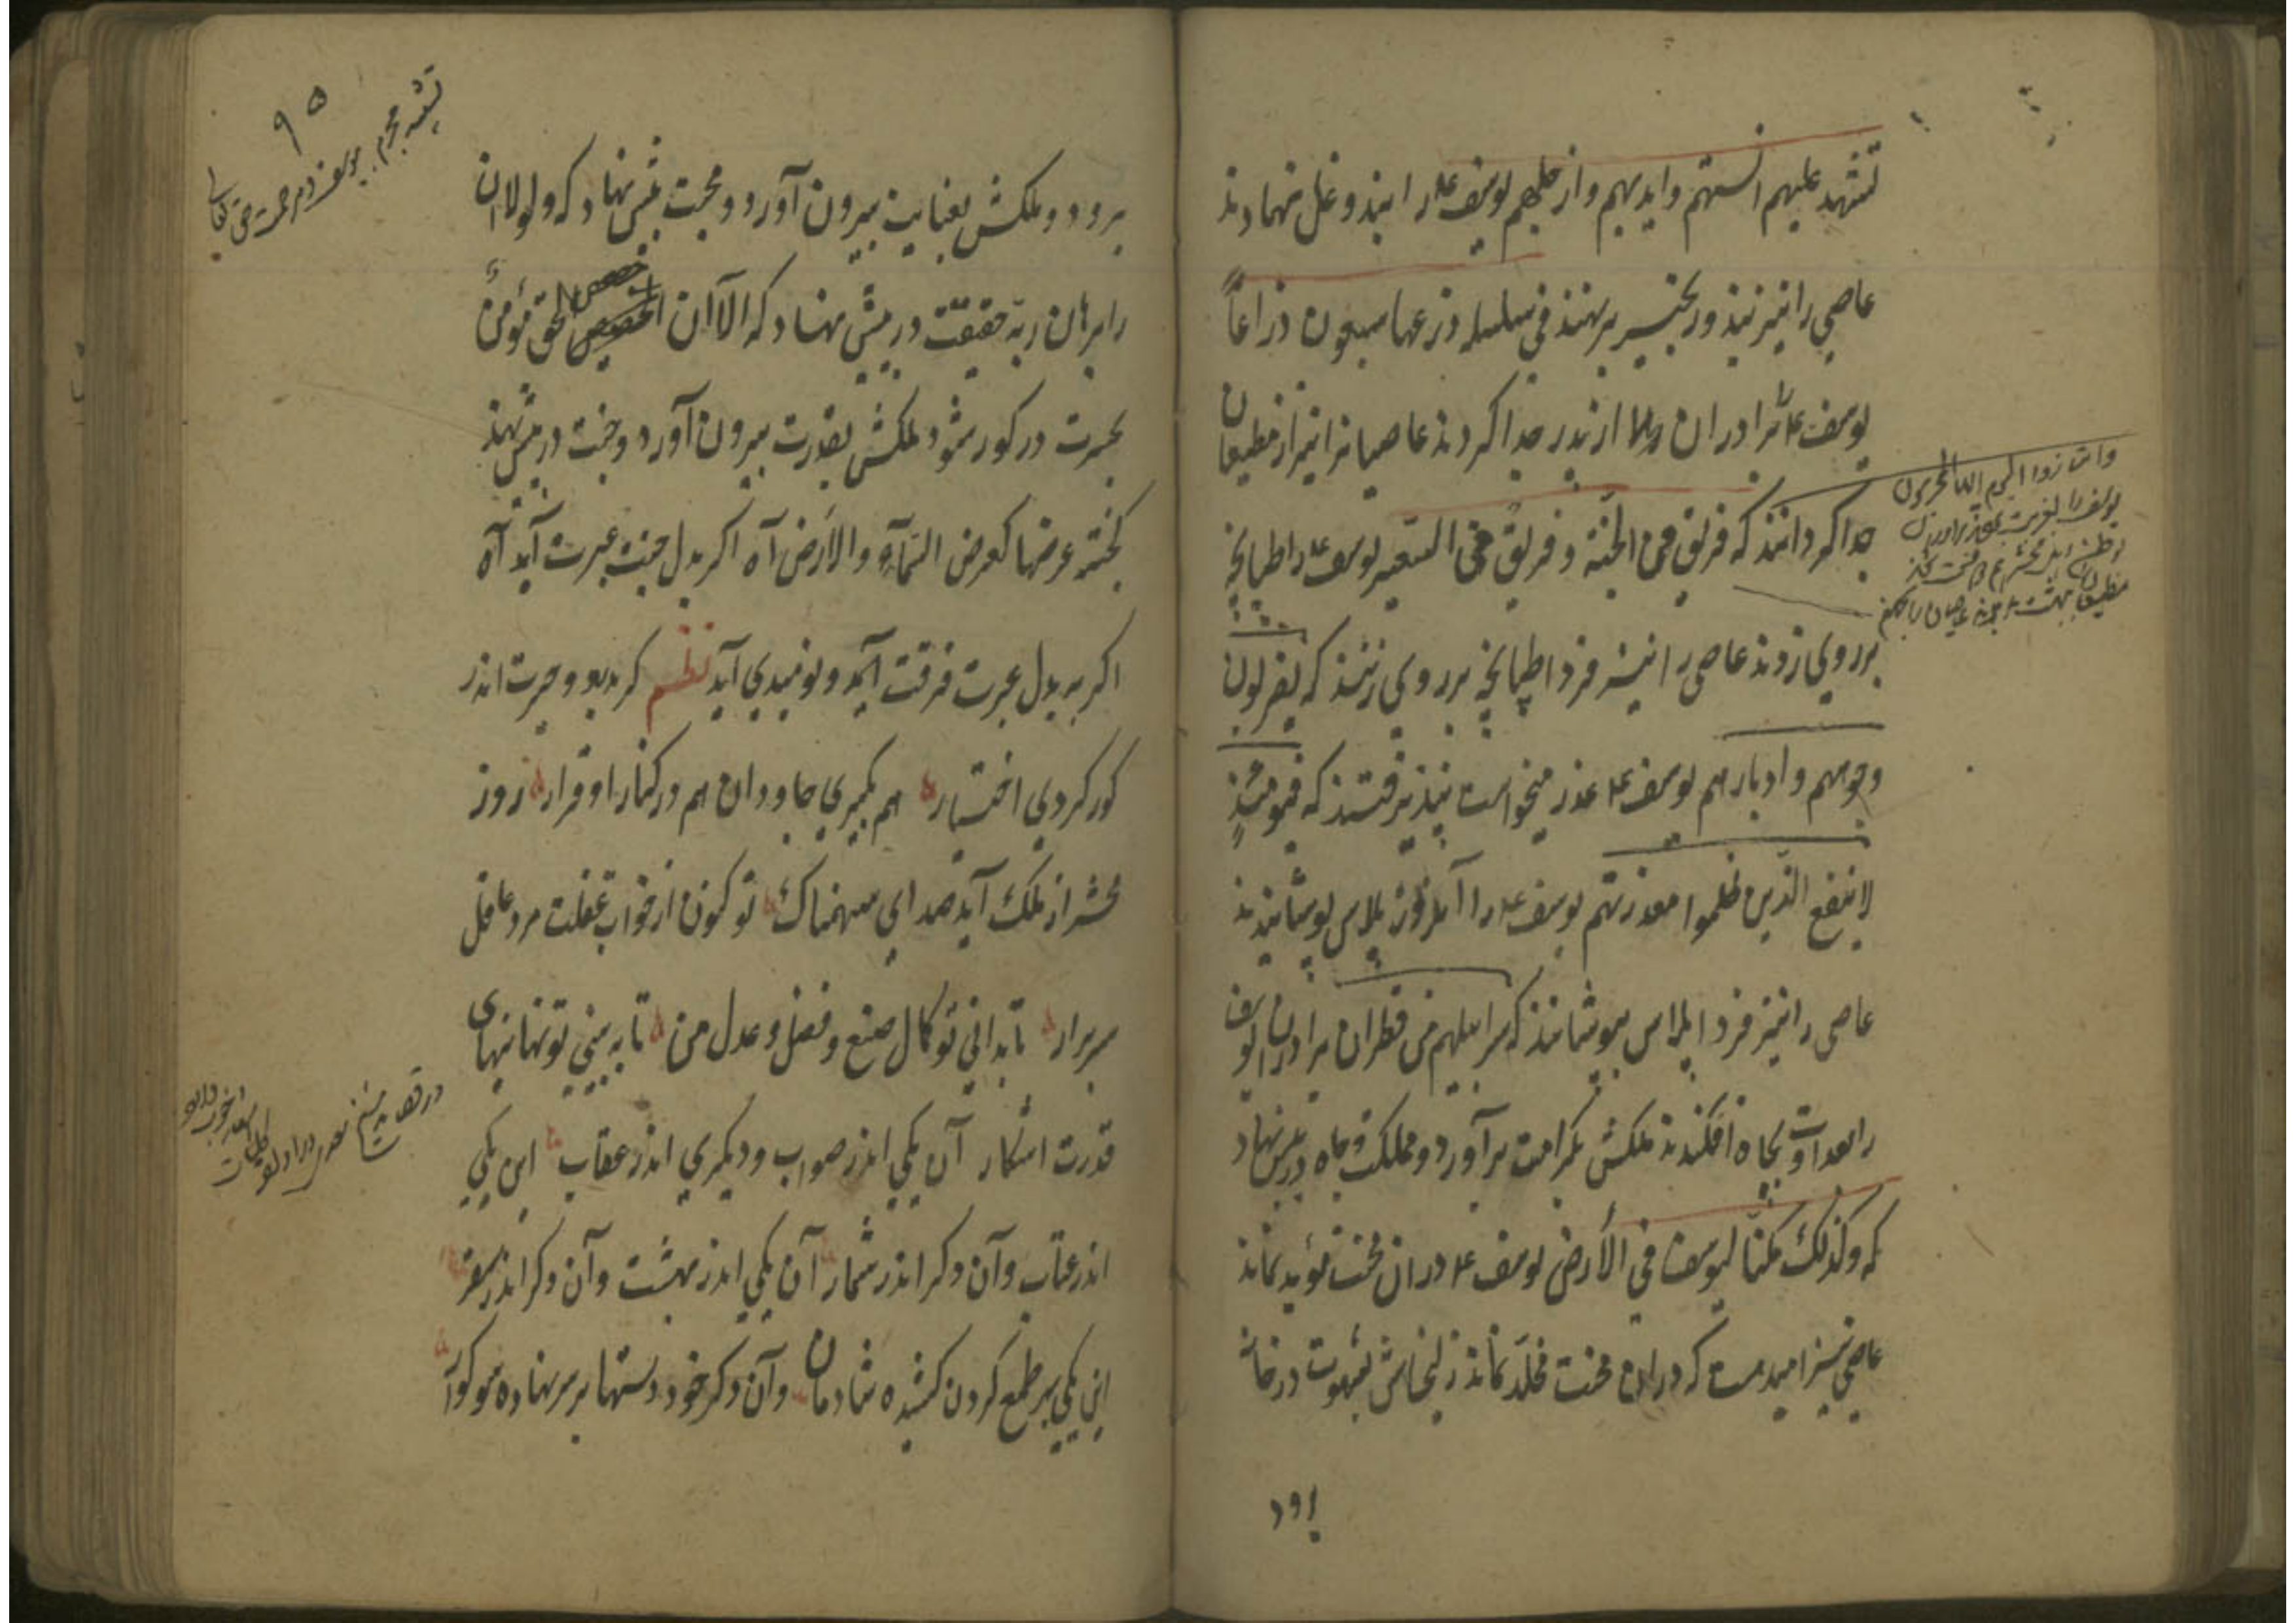 تشهد علیهم السنتهم وایدیهم وارجلهم یوسف ع را بند و غل نهادند
عاصی را نیز بند و زنجیر بر نهند فی سلسلة ذرعها سبعون ذراعاً
یوسف ع را برادران از پدر جدا کردند عاصیانرا نیز از مطیعان
جدا کردانند که فریق فی الجنة و فریق فی السعیر یوسف ع را طپانچه
بر روی زدند عاصی را نیز فردا طپانچه بر روی زنند که یضربون
وجوههم وادبارهم یوسف ع عذر میخواست نپذیرفتند که فیومئذٍ
لا ینفع الذین ظلموا معذرتهم یوسف ع را آنروز پلاس پوشانیدند
عاصی را نیز فردا پلاس پوشانند که سرابیلهم من قطران برادران یوسف
را بعداوت بچاه افکندند ملکش بکرامت برآورد و مملکت و جاه در پیش نهاد
که وکذلک مکنّا لیوسف فی الأرض یوسف ع دران محنت مؤبد نماند
عاصی نیز امیدست که دران محنت مخلّد نماند زلیخاش بشهوت درخانه
برود
وامتازوا الیوم ایها المجرمون
یوسف را
۹۵
برود و ملکش بعنایت بیرون آورد و محبت پیش نهاد که ولولا ان
را برهان ربه حقیقت در پیش نهاد که الآان حصحص الحق مؤمن
بحسرت در کور شود ملکش بقدرت بیرون آورد و جنت در پیش نهند
که جنة عرضها کعرض السمآء والأرض آه اکر بدل جنت عبرت آید آه
اکر به بدل عبرت فرقت آید و نومیدی آید نظم کر بدو و حیرت اندر
کور کردی اختیار هم بکیری جاودان هم در کنار او قرار روز
محشر از ملک آید صدای سهمناک تو کنون از خواب غفلت مرد غافل
سر برار تا بدانی تو کمال صنع و فضل و عدل من تا به بینی تو نهانیهای
قدرت اشکار آن یکی اندر صواب و دیکری اندر عقاب این یکی
اندر عتاب وآن دکر اندر شمار آن یکی اندر بهشت وآن دکر اندر سقر
این یکی بر طمع کردن کشیده شادمان وآن دکر خود دستها بر سر نهاده سوکوار